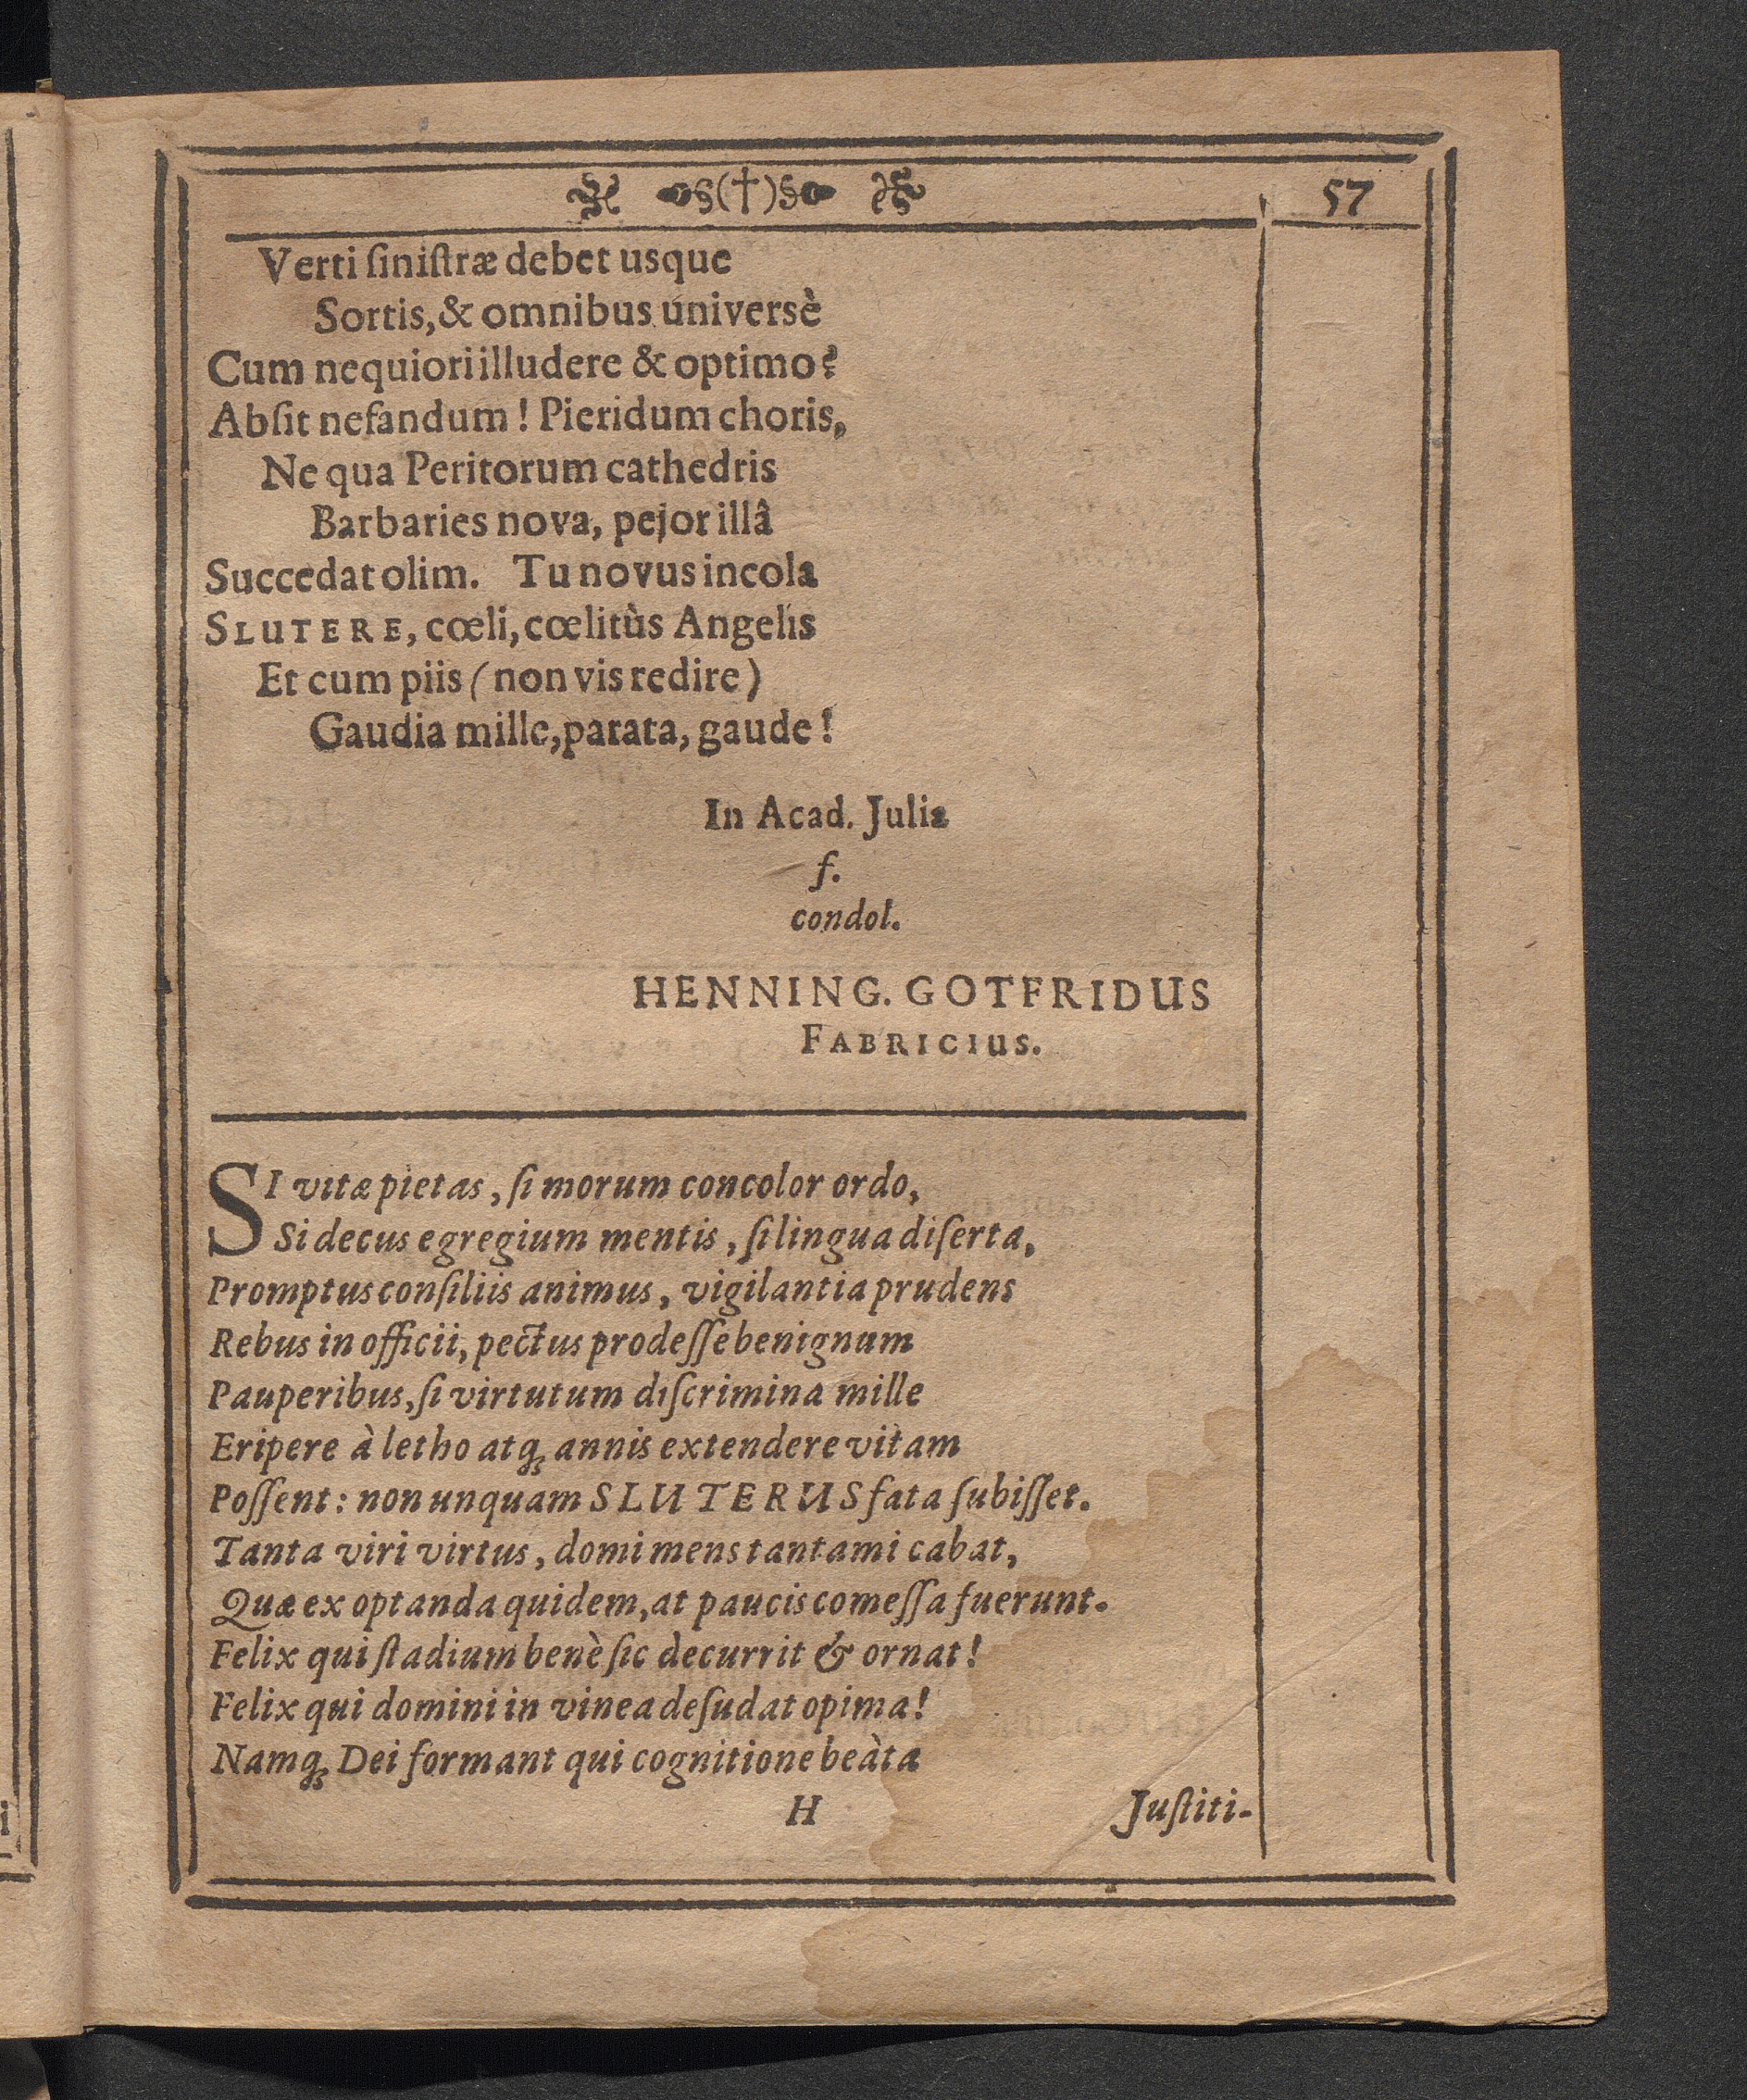 ❧ §(†)§ ❧ 57
Verti ſiniſtræ debet usque
Sortis, & omnibus universè
Cum nequiori illudere & optimo?
Abſit nefandum! Pieridum choris,
Ne qua Peritorum cathedris
Barbaries nova, pejor illâ
Succedat olim. Tu novus incola
SLUTERE, cœli, cœlitùs Angelis
Et cum piis (non vis redire)
Gaudia mille, parata, gaude!
In Acad. Julia
f.
condol.
HENNING. GOTFRIDUS
FABRICIUS.
SI vitæ pietas, ſi morum concolor ordo,
Si decus egregium mentis, ſi lingua diſerta,
Promptus conſiliis animus, vigilantia prudens
Rebus in officii, pectus prodeſſe benignum
Pauperibus, ſi virtutum diſcrimina mille
Eripere à letho atq; annis extendere vitam
Poſſent: non unquam SLUTERUS fata ſubiſſet.
Tanta viri virtus, domi mens tanta mi cabat,
Quæ ex optanda quidem, at paucis comeſſa fuerunt.
Felix qui ſtadium benè ſic decurrit & ornat!
Felix qui domini in vinea deſudat opima!
Namq; Dei formant qui cognitione beàta
H Juſtiti-